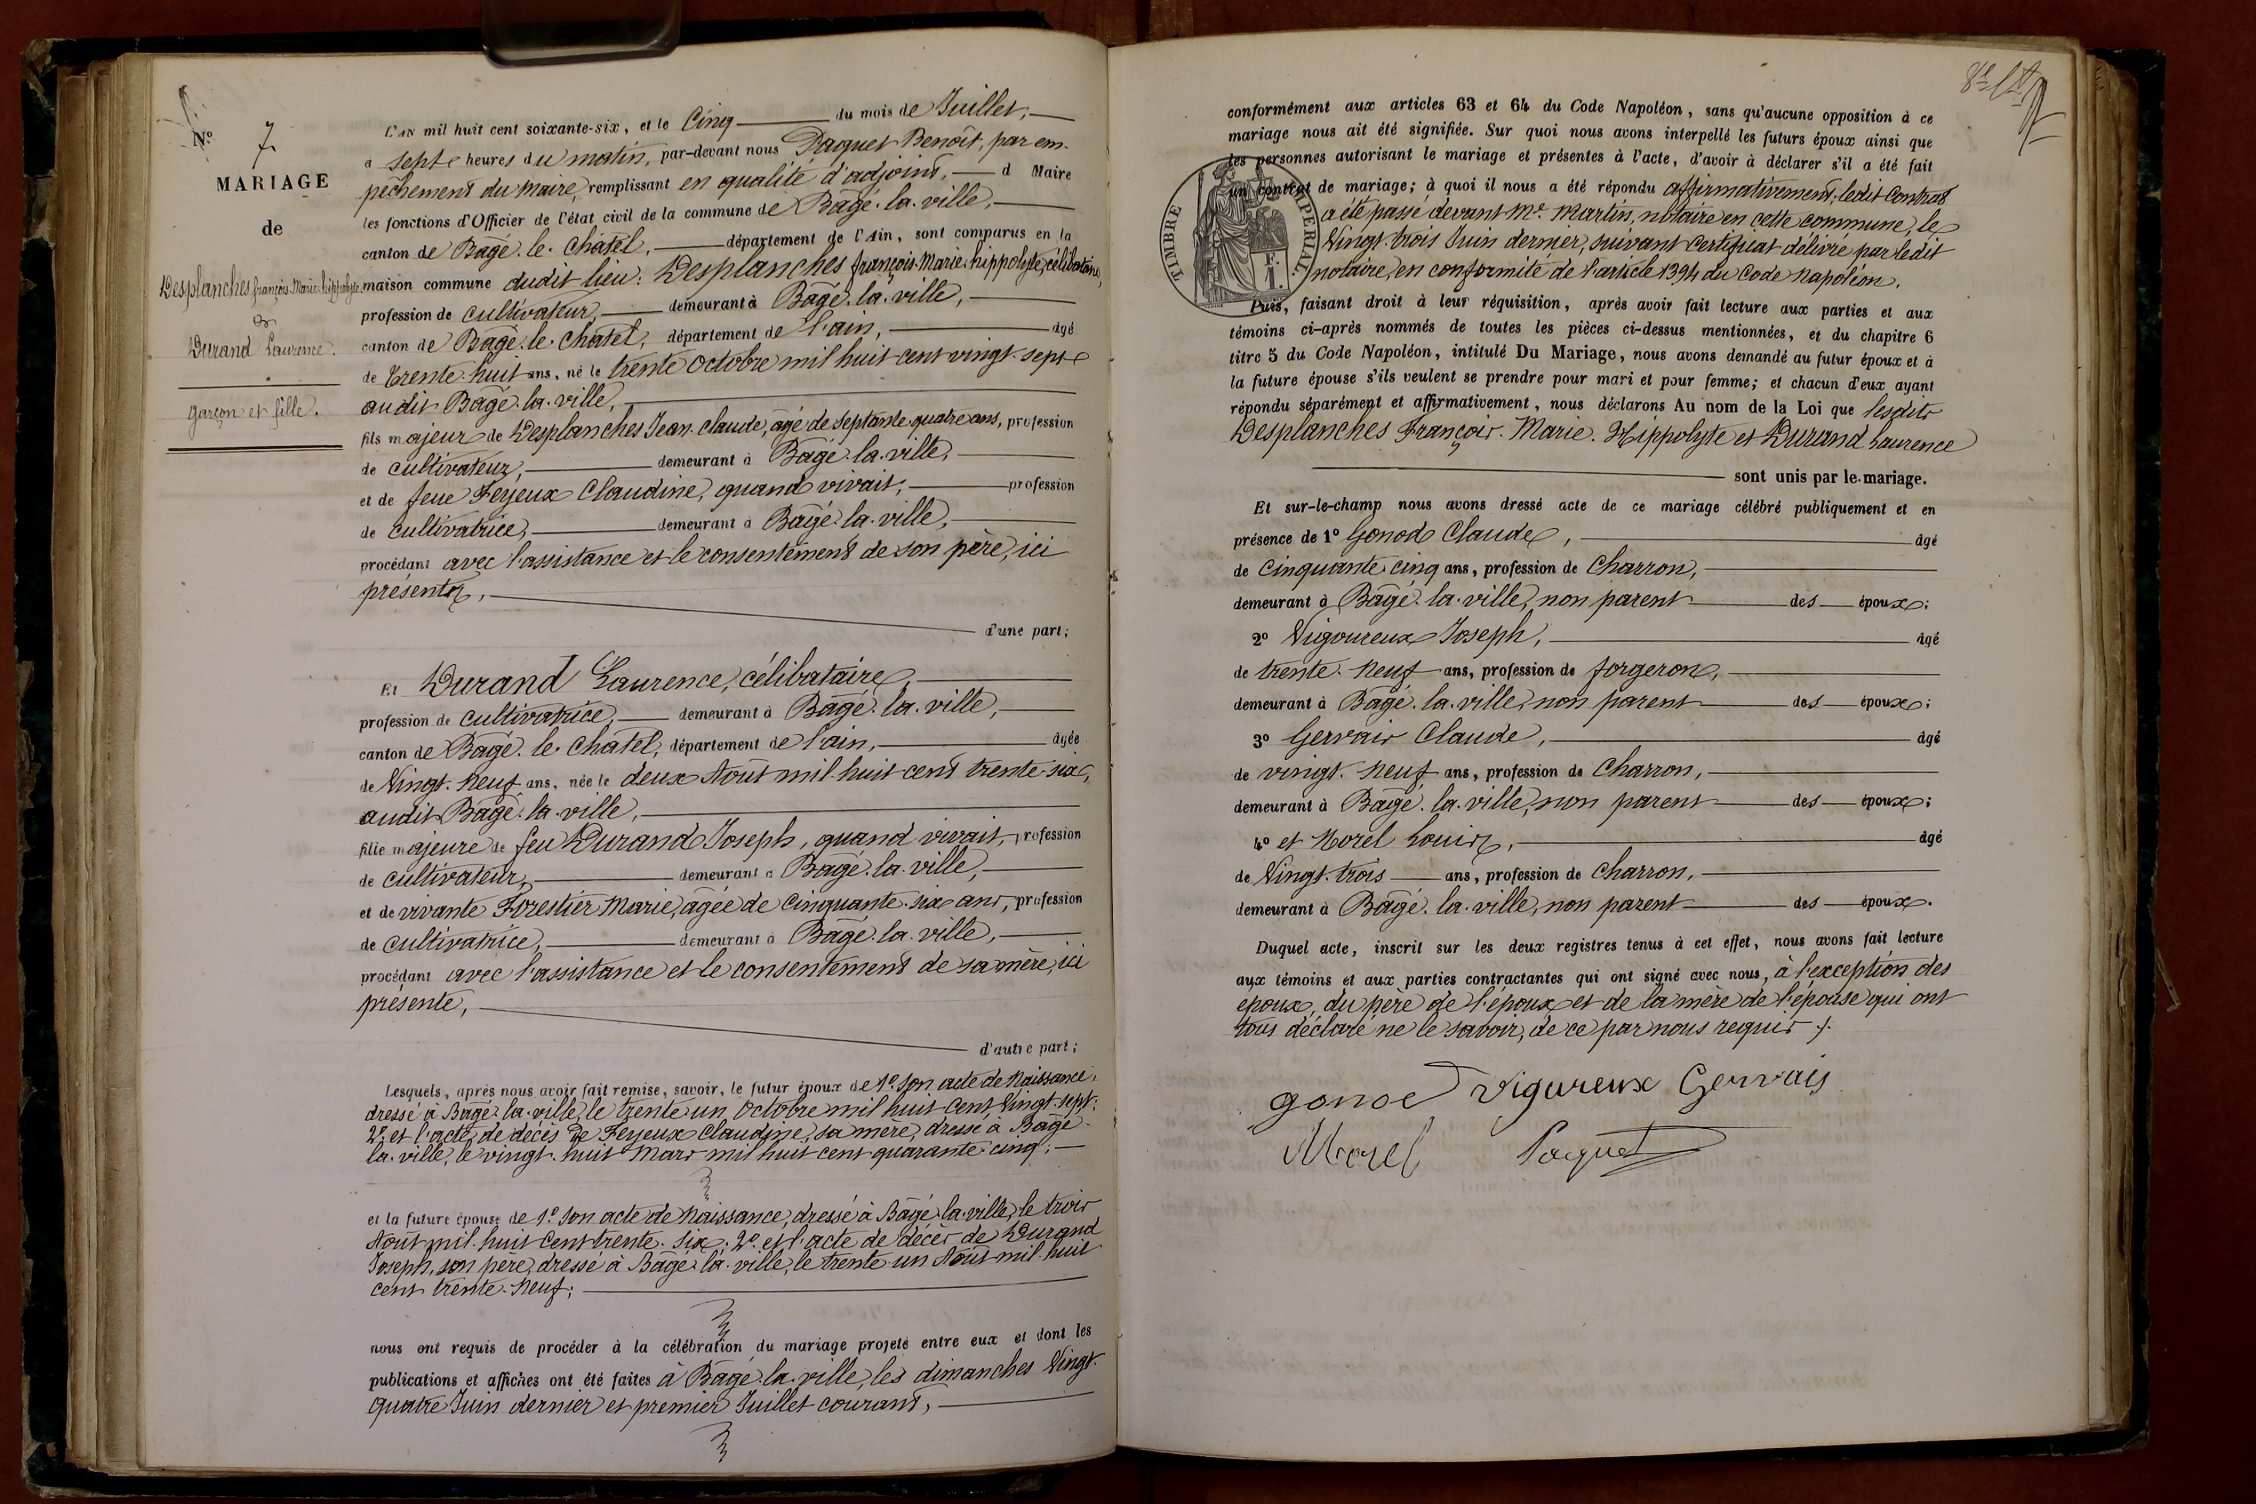 N° 7
MARIAGE
de
Desplanches françois Marie hippolyte
et
Durand Laurence.
garçon et fille.
L'AN mil huit cent soixante-six, et le Cinq du mois de Juillet,
a sept heures du matin, par-devant nous Paquet Benoît, par em-
pêchement du Maire, remplissant en qualité d'adjoint, d Maire
les fonctions d'Officier de l'état civil de la commune de Bâgé-la-ville,
canton de Bâgé-le-Châtel, département de l'Ain, sont comparus en la
maison commune dudit lieu: Desplanches françois-Marie-hippolyte, célibataire,
profession de cultivateur, demeurant à Bâgé-la-ville,
canton de Bâgé-le-Châtel, département de l'ain, âgé
de trente-huit ans, né le trente Octobre mil huit cent vingt-sept
audit Bâgé-la-ville,
fils majeur de Desplanches Jean-Claude, âgé de septante quatre ans, profession
de cultivateur, demeurant à Bâgé-la-ville,
et de feue Feyeux Claudine, quand vivait, profession
de cultivatrice, demeurant à Bâgé-la-ville,
procédant avec l'assistance et le consentement de son père, ici
présent,
d'une part;
Et Durand Laurence, célibataire,
profession de cultivatrice, demeurant à Bâgé-la-ville,
canton de Bâgé-le-Châtel, département de l'ain, âgée
de Vingt-neuf ans, née le deux Août mil-huit cent trente-six,
audit Bâgé-la-ville,
fille majeure de feu Durand Joseph, quand vivait, profession
de cultivateur, demeurant à Bâgé-la-ville,
et de vivante Forestier Marie, âgée de cinquante-six ans, profession
de cultivatrice, demeurant à Bâgé-la-ville,
procédant avec l'assistance et le consentement de sa mère, ici
présente,
d'autre part;
Lesquels, après nous avoir fait remise, savoir, le futur époux de 1° son acte de Naissance,
dressé à Bâgé-la-ville, le trente un Octobre mil huit cent Vingt-sept;
2° et l'acte de décès de Feyeux Claudine, sa mère, dressé à Bâgé-
la-ville, le vingt-huit Mars mil huit cent quarante-cinq;
et la future épouse de 1° son acte de Naissance, dressé à Bâgé-la-ville, le trois
Août mil-huit cent trente-six; 2° et l'acte de décès de Durand
Joseph, son père, dressé à Bâgé-la-ville, le trente-un Août mil-huit
cent trente-neuf;
nous ont requis de procéder à la célébration du mariage projeté entre eux et dont les
publications et affiches ont été faites à Bâgé-la-ville, les dimanches Vingt-
quatre Juin dernier et premier Juillet courant,
conformément aux articles 63 et 64 du Code Napoléon, sans qu'aucune opposition à ce
mariage nous ait été signifiée. Sur quoi nous avons interpellé les futurs époux ainsi que
les personnes autorisant le mariage et présentes à l'acte, d'avoir à déclarer s'il a été fait
un contrat de mariage; à quoi il nous a été répondu affirmativement, ledit Contrat
a été passé devant Me. Martin, notaire en cette commune, le
Vingt-trois Juin dernier, suivant certificat délivré par ledit
notaire, en conformité de l'article 1394 du Code Napoléon.
TIMBRE IMPERIAL.
Puis, faisant droit à leur réquisition, après avoir fait lecture aux parties et aux
témoins ci-après nommés de toutes les pièces ci-dessus mentionnées, et du chapitre 6
titre 5 du Code Napoléon, intitulé Du Mariage, nous avons demandé au futur époux et à
la future épouse s'ils veulent se prendre pour mari et pour femme; et chacun d'eux ayant
répondu séparément et affirmativement, nous déclarons Au nom de la Loi que lesdits
Desplanches François-Marie-Hippolyte et Durand Laurence
sont unis par le mariage.
Et sur-le-champ nous avons dressé acte de ce mariage célébré publiquement et en
présence de 1° Gonod Claude, âgé
de Cinquante-cinq ans, profession de Charron,
demeurant à Bâgé-la-ville, non parent des époux;
2° Vigoureux Joseph, âgé
de trente-neuf ans, profession de forgeron,
demeurant à Bâgé-la-ville, non parent des époux;
3° Gervais Claude, âgé
de vingt-neuf ans, profession de Charron,
demeurant à Bâgé-la-ville, non parent des époux;
4° et Morel Louis, âgé
de Vingt-trois ans, profession de charron,
demeurant à Bâgé-la-ville, non parent des époux.
Duquel acte, inscrit sur les deux registres tenus à cet effet, nous avons fait lecture
aux témoins et aux parties contractantes qui ont signé avec nous, à l'exception des
époux, du père de l'époux et de la mère de l'épouse qui ont
tous déclaré ne le savoir, de ce par nous requis.
gonod Vigureux Gervais
Morel Paquet